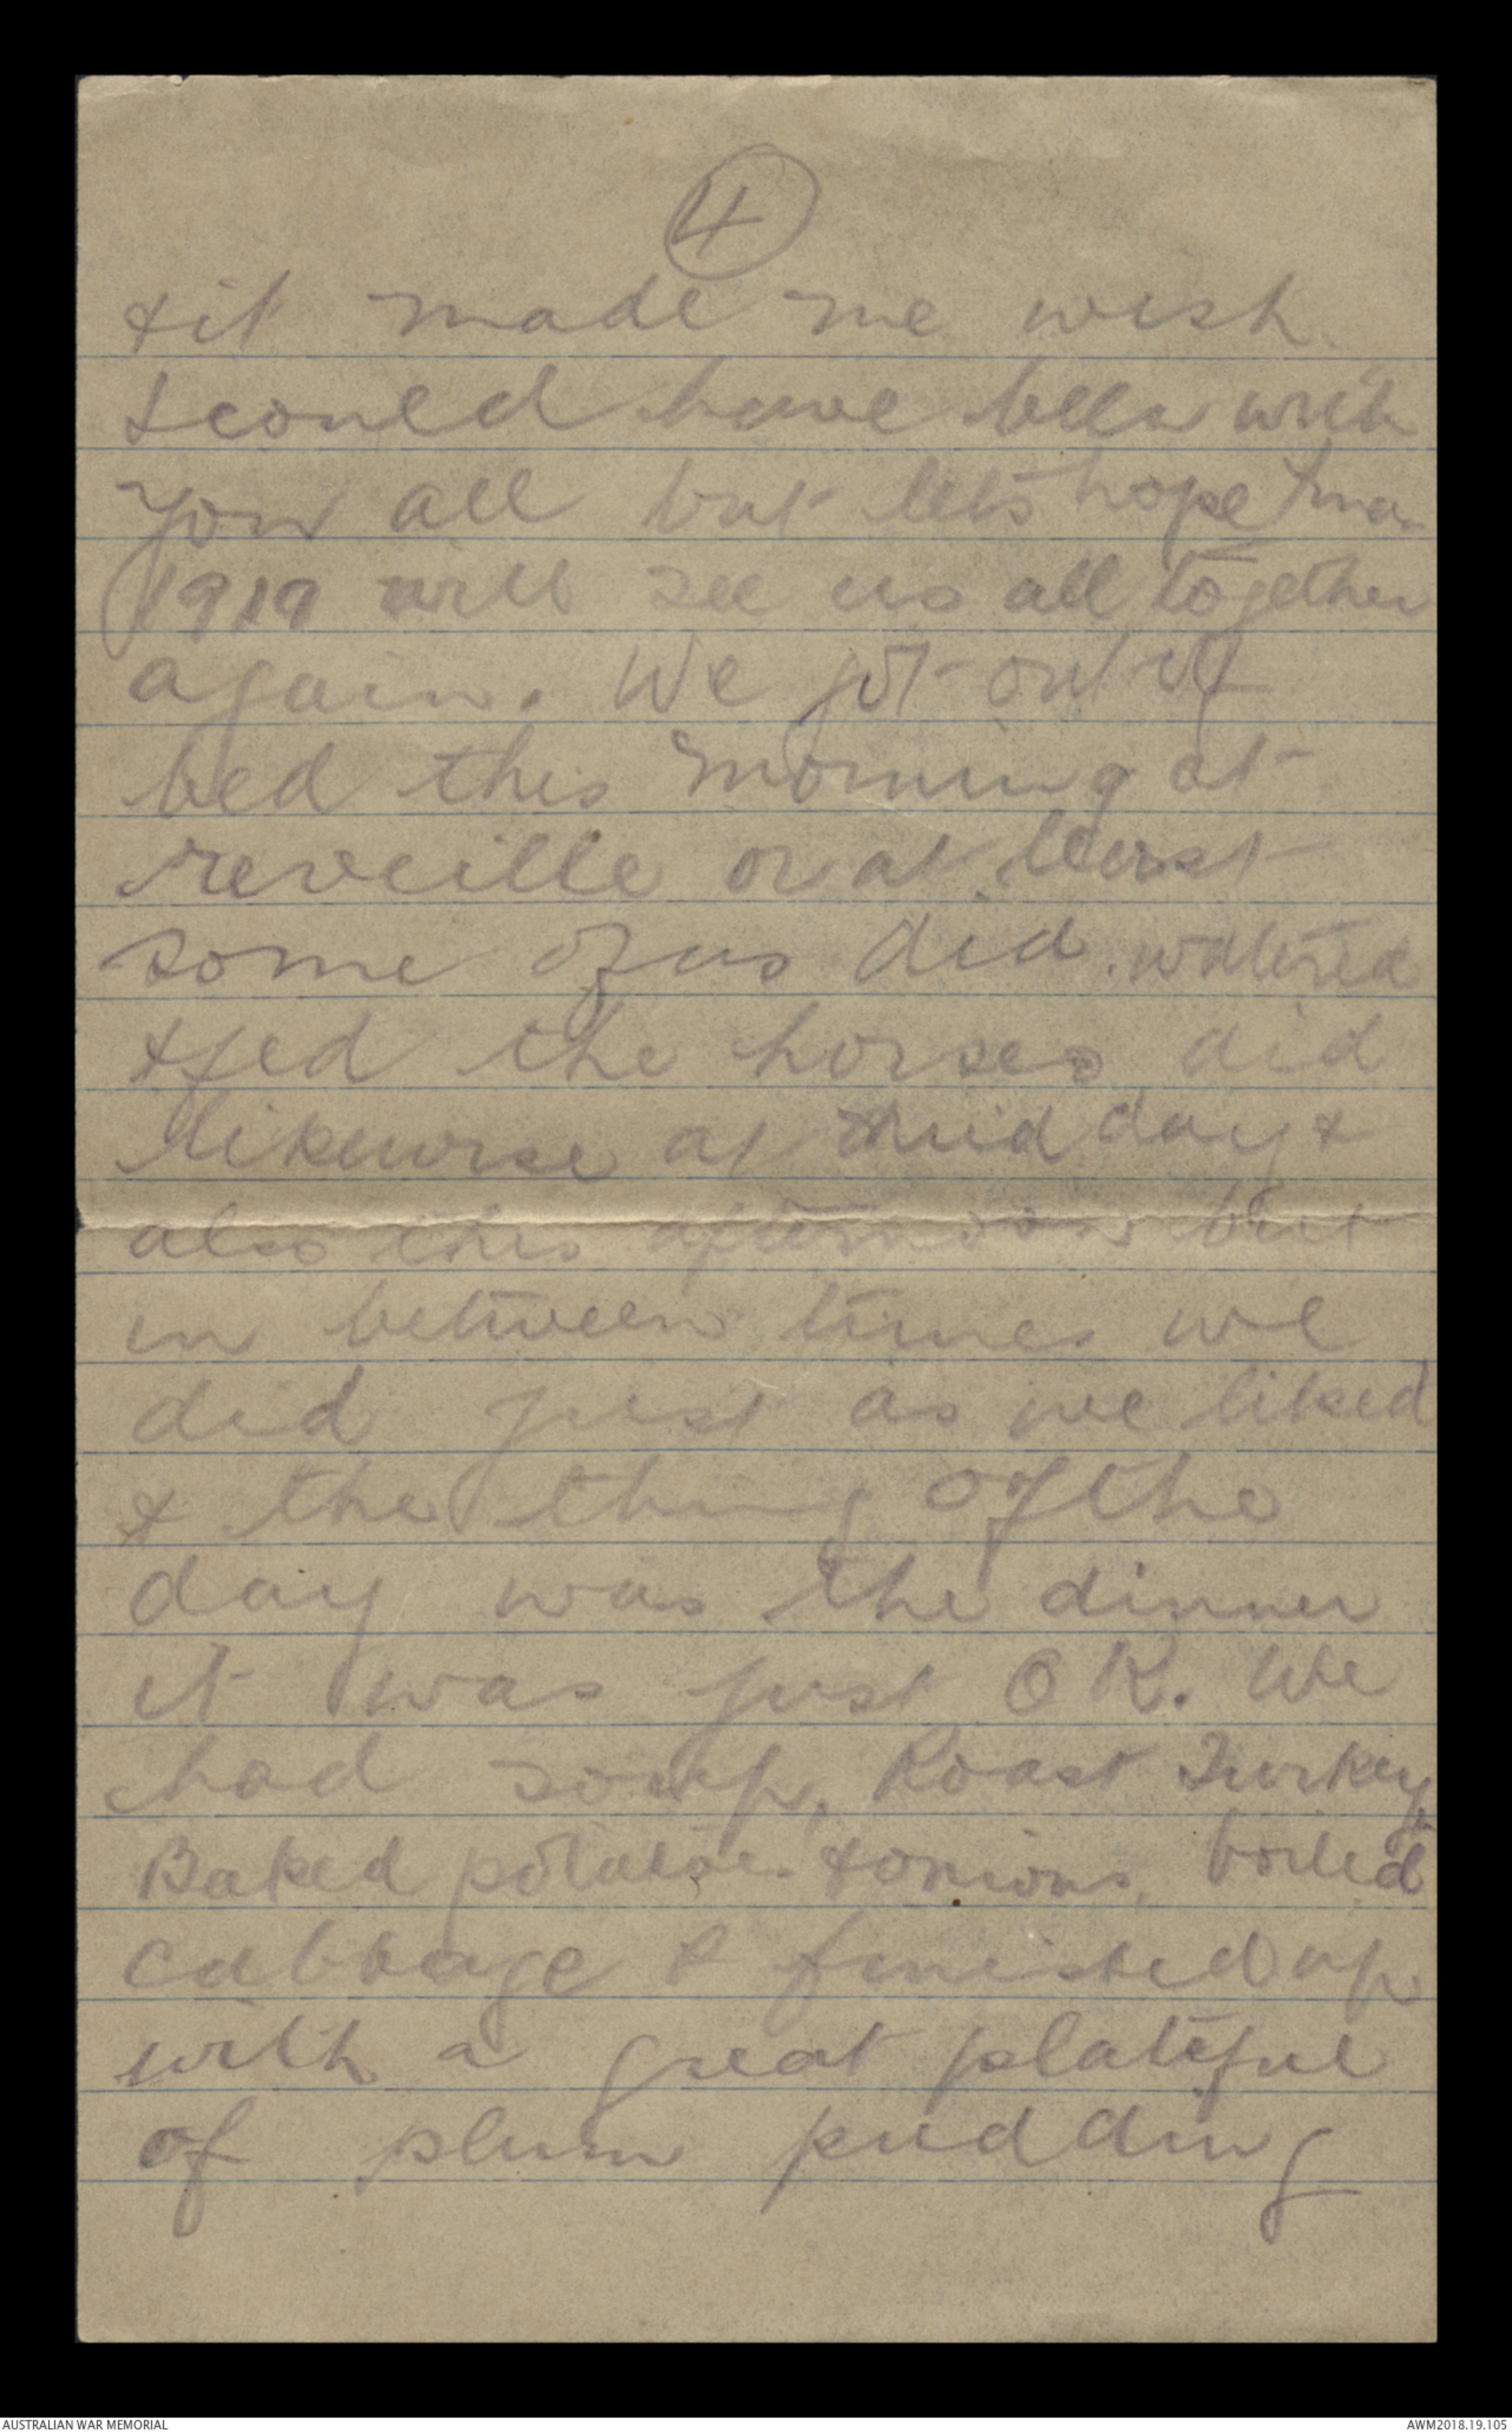 4
& it made me wish
I could have been with
you all but lets hope Xmas
1919 will see us all together
again. We got out of
bed this morning at
reveille or at least
some of us did. watered
& fed the horses did
likewise at mid day &
also this afternoon but
in between times we
did just as we liked
& the thing of the
day was the dinner
it was just OK. We
had soup, Roast Turkey,
Baked potatoes & onions, boiled
cabbage & finished up
with a great plateful
of plum pudding
AUSTRALIAN WAR MEMORIAL
AWM2018.19.105